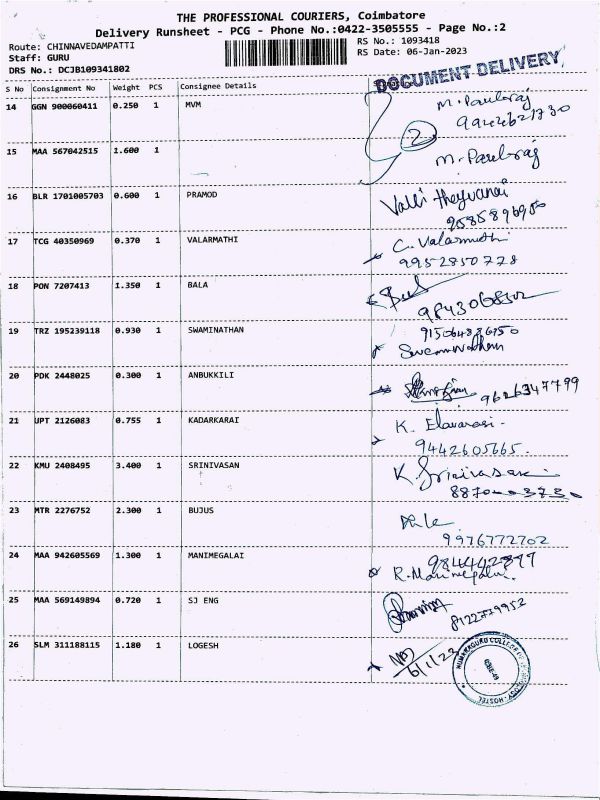 THE PROFESSIONAL COURIERS, Coimbatore
Delivery Runsheet - PCG - Phone No.:0422-3505555 - Page No.:2
Route: CHINNAVEDAMPATTI
Staff: GURU
DRS No.: DCJB109341802
RS No.: 1093418
RS Date: 06-Jan-2023
DOCUMENT DELIVERY
S No Consignment No Weight PCS Consignee Details
14 GGN 900060411 0.250 1 MVM M. Paulraj
2
15 MAA 567042515 1.600 1 M. Paulraj
16 BLR 1701005703 0.600 1 PRAMOD Valli theyvanai
17 TCG 40350969 0.370 1 VALARMATHI C. Valarmathi
9952850778
18 PON 7207413 1.350 1 BALA
19 TRZ 195239118 0.930 1 SWAMINATHAN
Swaminathan
20 PDK 2448025 0.300 1 ANBUKKILI 9626347799
21 UPT 2126083 0.755 1 KADARKARAI K. Elavarasi
9442605665.
22 KMU 2408495 3.400 1 SRINIVASAN K. Srinivasan
23 MTR 2276752 2.300 1 BUJUS
9976772702
24 MAA 942605569 1.300 1 MANIMEGALAI
R. Manimegalai.
25 MAA 569149894 0.720 1 SJ ENG
26 SLM 311188115 1.180 1 LOGESH
6/1/23